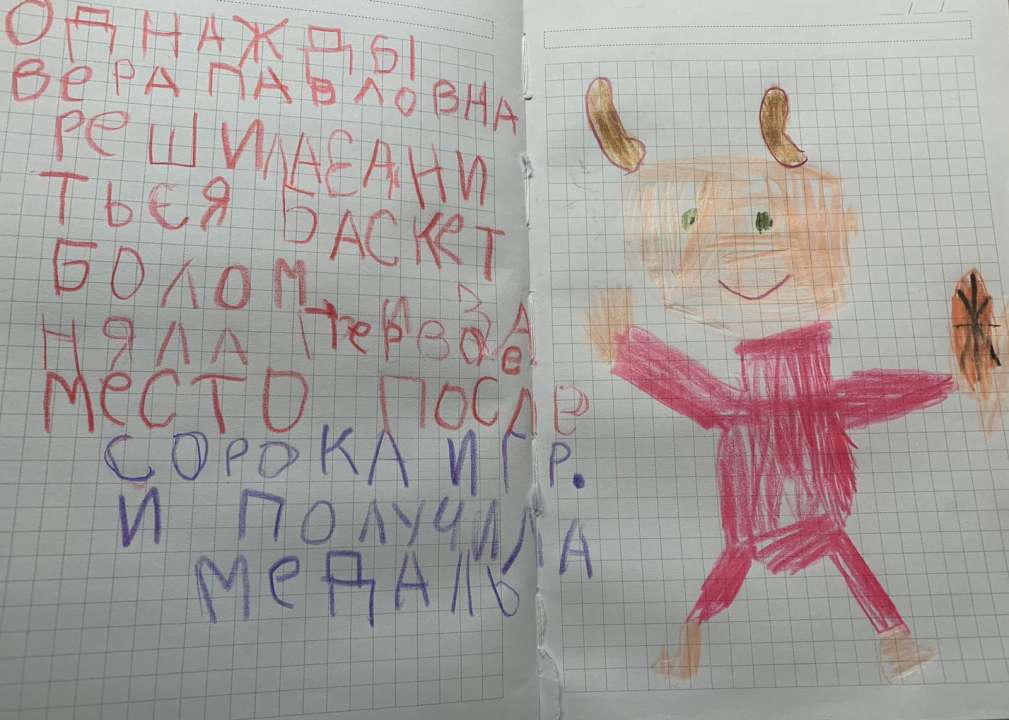 ОДНАЖДЫ
ВеРА ПАВЛОВНА
РеШИЛА ЗАНИ
ТЬСЯ БАСКеТ
БОЛОМ. И ЗА
НЯЛА ПеРВОе
МеСТО ПОСЛе
СОРОКА ИГР.
И ПОЛУЧИЛА
МеДАЛЬ